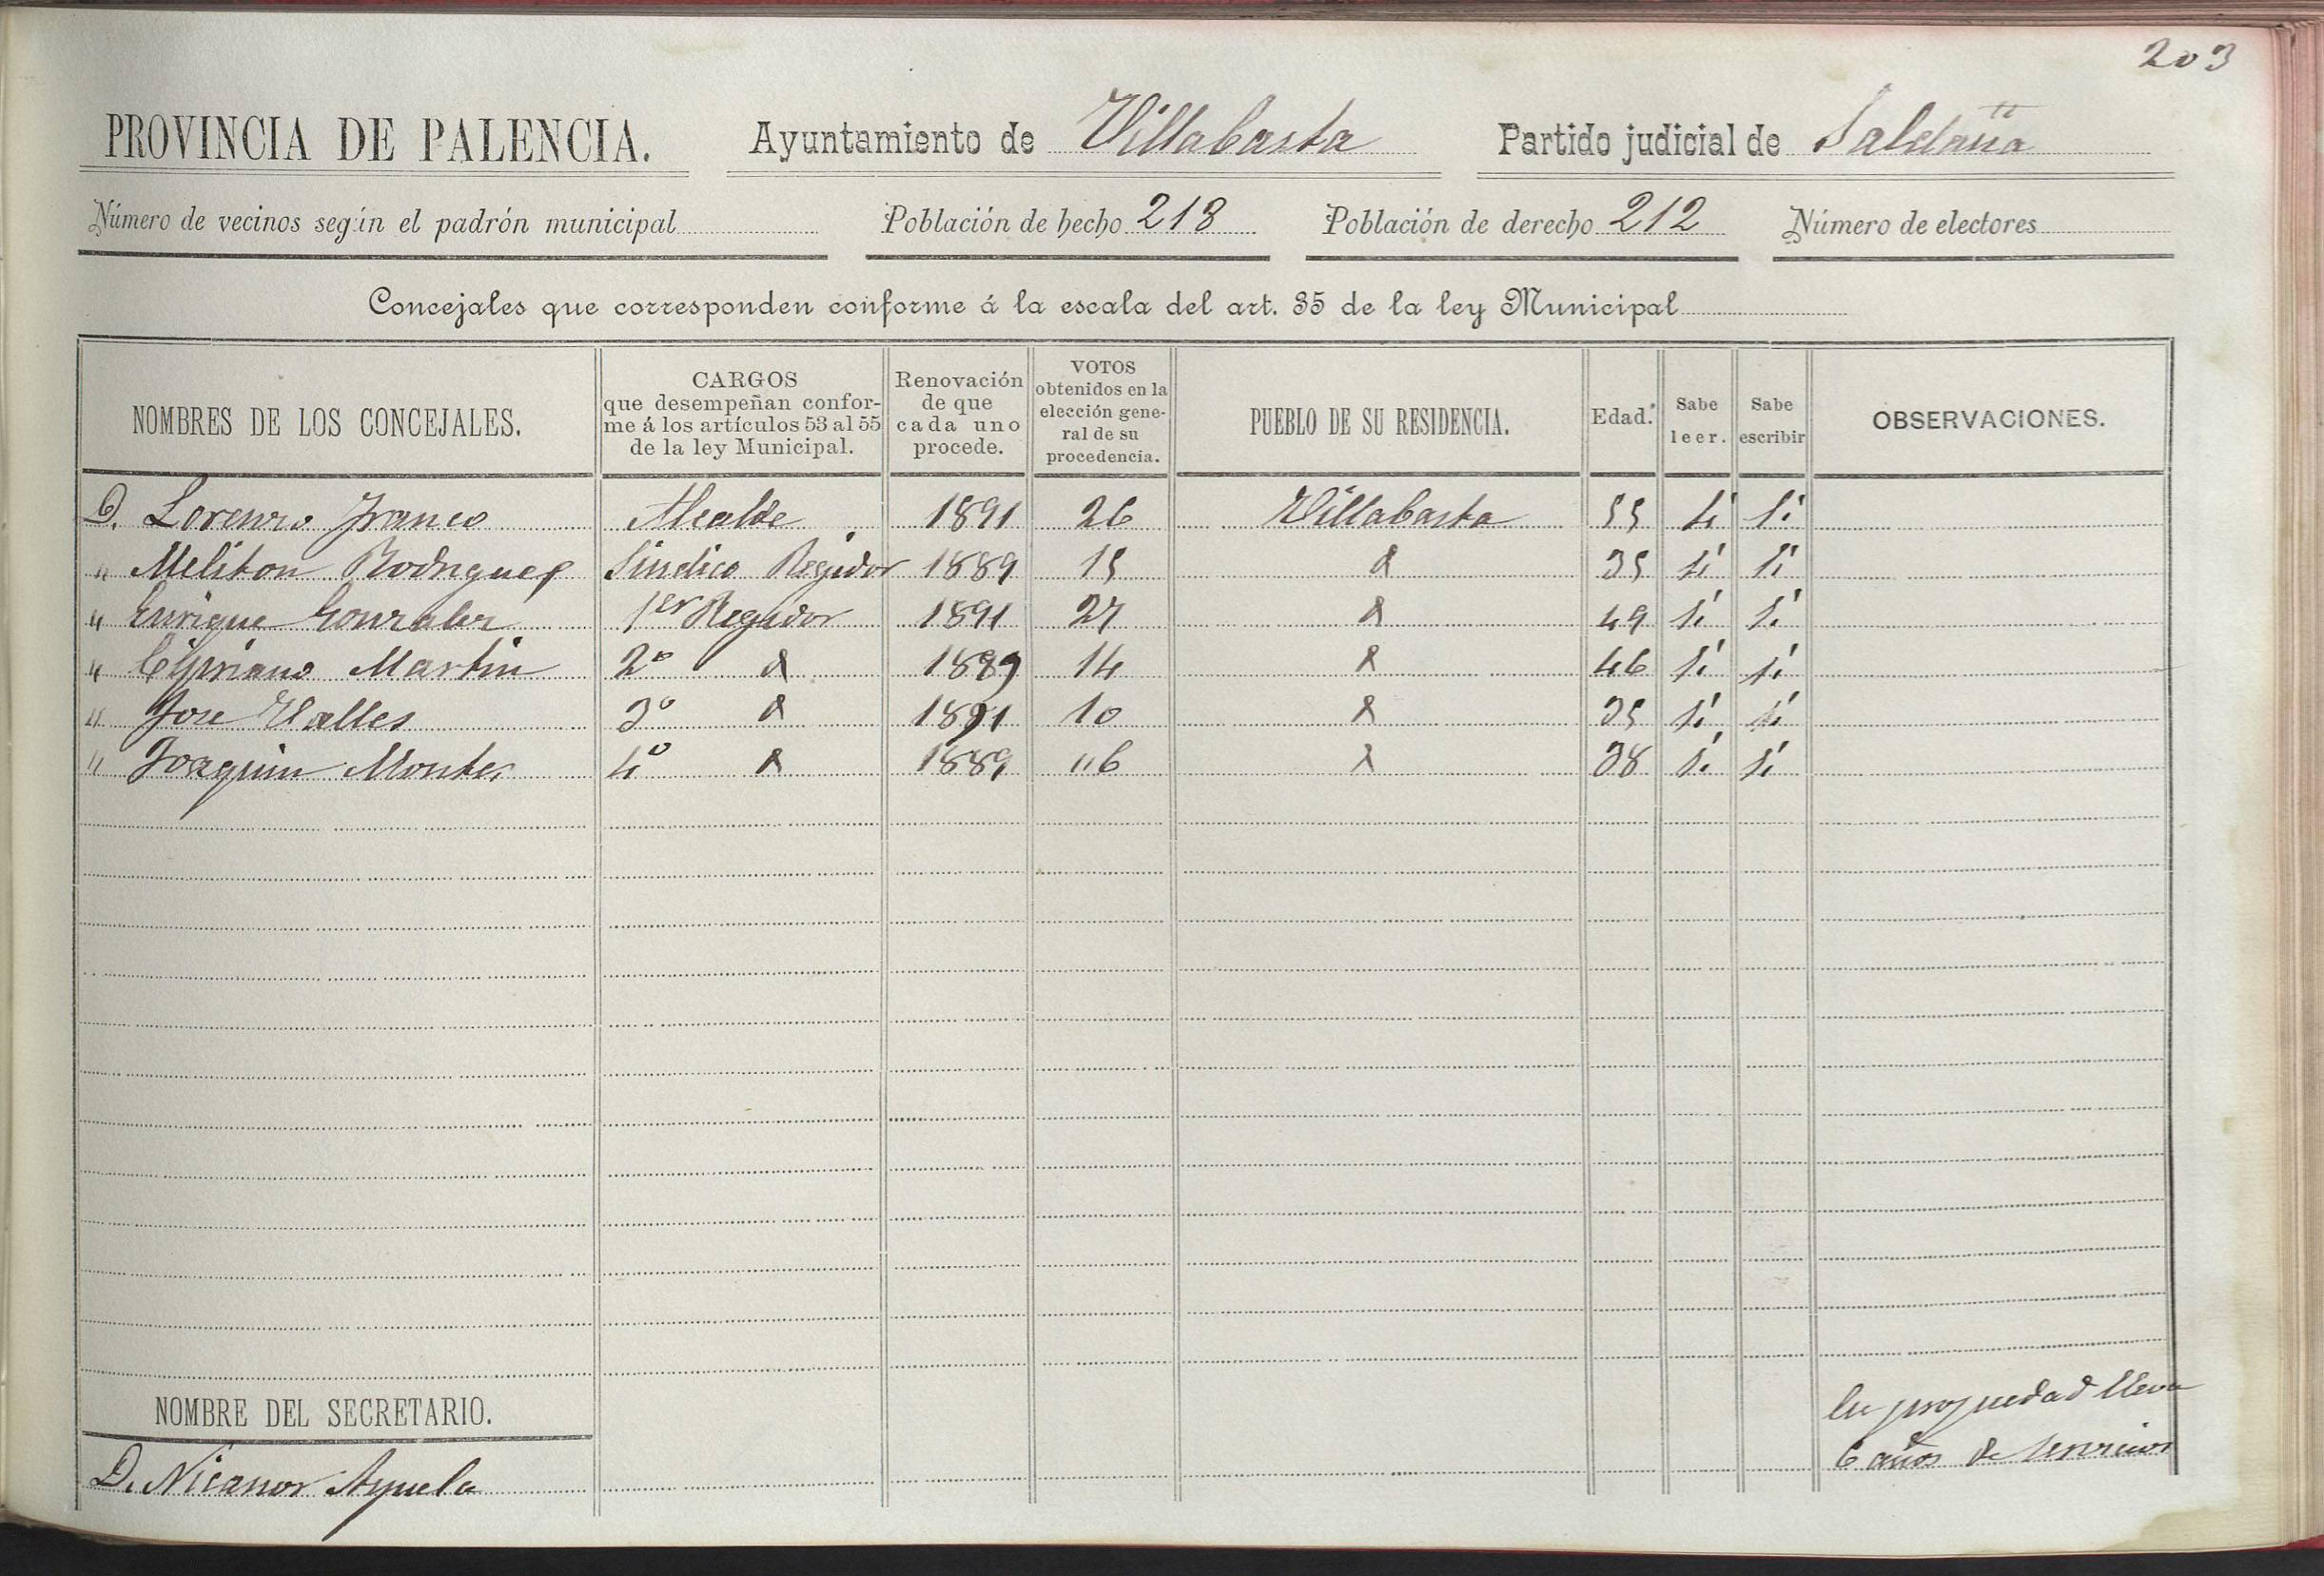 203
PROVINCIA DE PALENCIA. Ayuntamiento de Villabasta Partido judicial de Saldaña
Número de vecinos según el padrón municipal Población de hecho 218 Población de derecho 212 Número de electores
Concejales que corresponden conforme á la escala del art. 35 de la ley Municipal
NOMBRES DE LOS CONCEJALES. CARGOS que desempeñan conforme á los artículos 53 al 55 de la ley Municipal. Renovación de que cada uno procede. VOTOS obtenidos en la elección general de su procedencia. PUEBLO DE SU RESIDENCIA. Edad. Sabe leer. Sabe escribir OBSERVACIONES.
D. Lorenzo Franco Alcalde 1891 26 Villabasta 55 Si Si
" Meliton Rodriguez Sindico Regidor 1889 15 d 35 si si
" Enrique Gonzalez 1er Regidor 1891 27 d 49 si si
" Cipriano Martin 2º d 1889 14 d 46 si si
" Jose Valles 3º d 1891 10 d 35 si si
" Joaquin Montes 4º d 1889 "6 d 38 si si
NOMBRE DEL SECRETARIO.
D. Nicanor Ayuela
En propiedad lleva
6 años de servicios